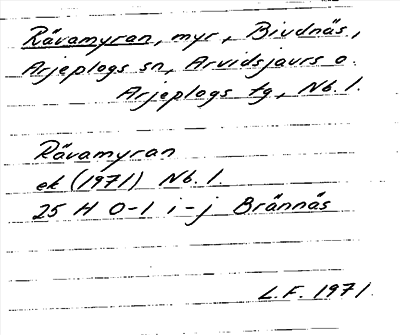 Rävamyran, myr, Bivdnäs,
Arjeplogs sn, Arvidsjaurs o.
Arjeplogs tg, Nb. l.
Rävamyran
ek (1971) Nb. l.
25 H 0-1 i-j Brännäs
L.F. 1971